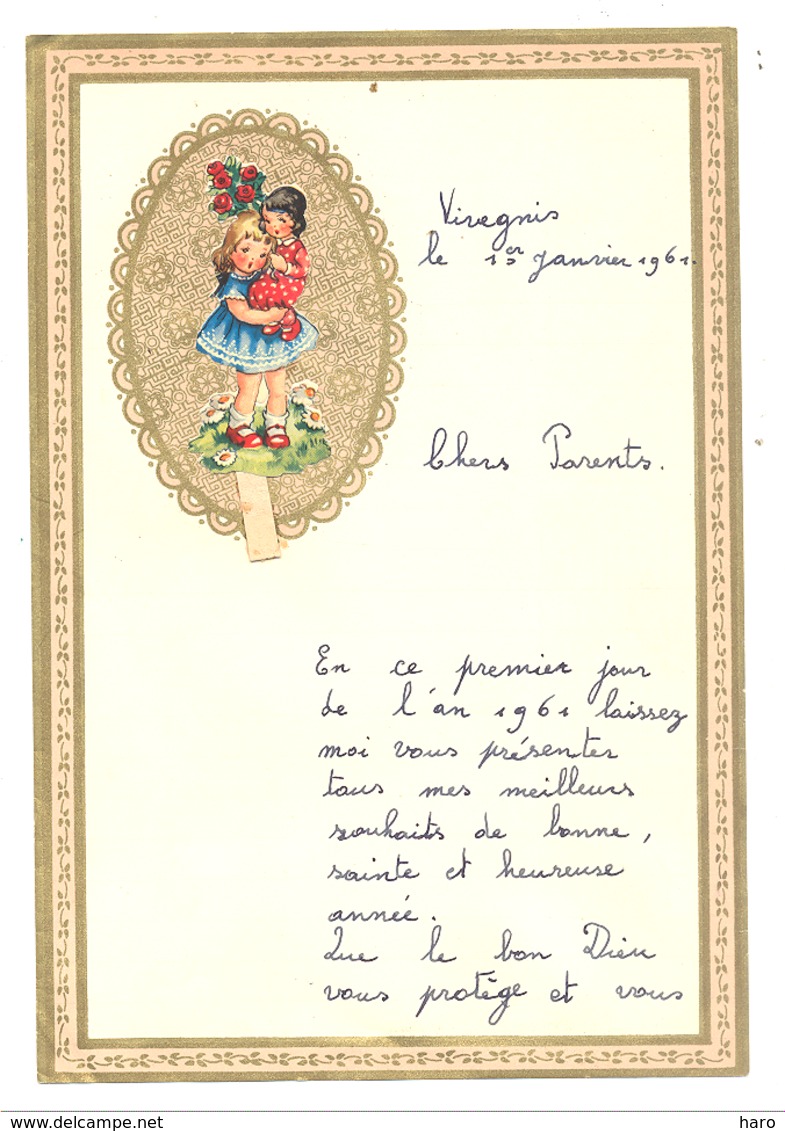 Vivegnis
le 1er Janvier 1961.
Chers Parents.
En ce premier jour
de l'an 1961 laissez
moi vous présenter
tous mes meilleurs
souhaits de bonne,
sainte et heureuse
année.
Que le bon Dieu
vous protège et vous
www.delcampe.net
haro